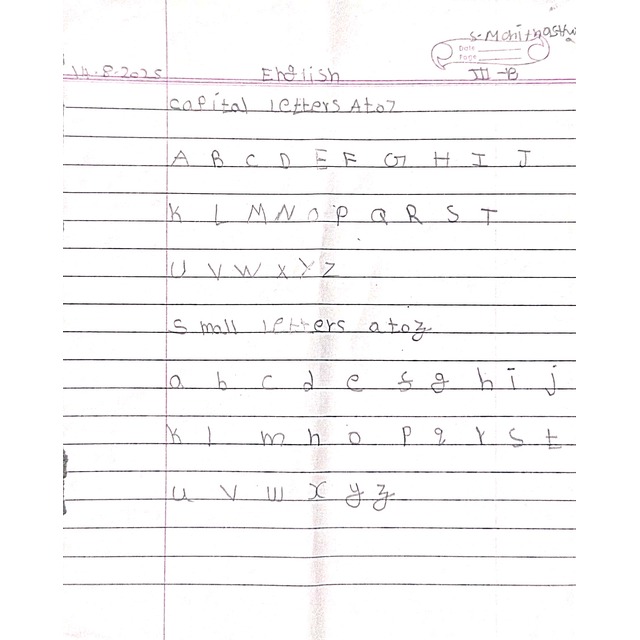 S-Mohithasthi
Date
Page
14.8.2025 English III-B
capital letters A to Z
A B C D E F G H I J
K L M N O P Q R S T
U V W X Y Z
small letters a to z
a b c d e f g h i j
k l m n o p q r s t
u v w x y z